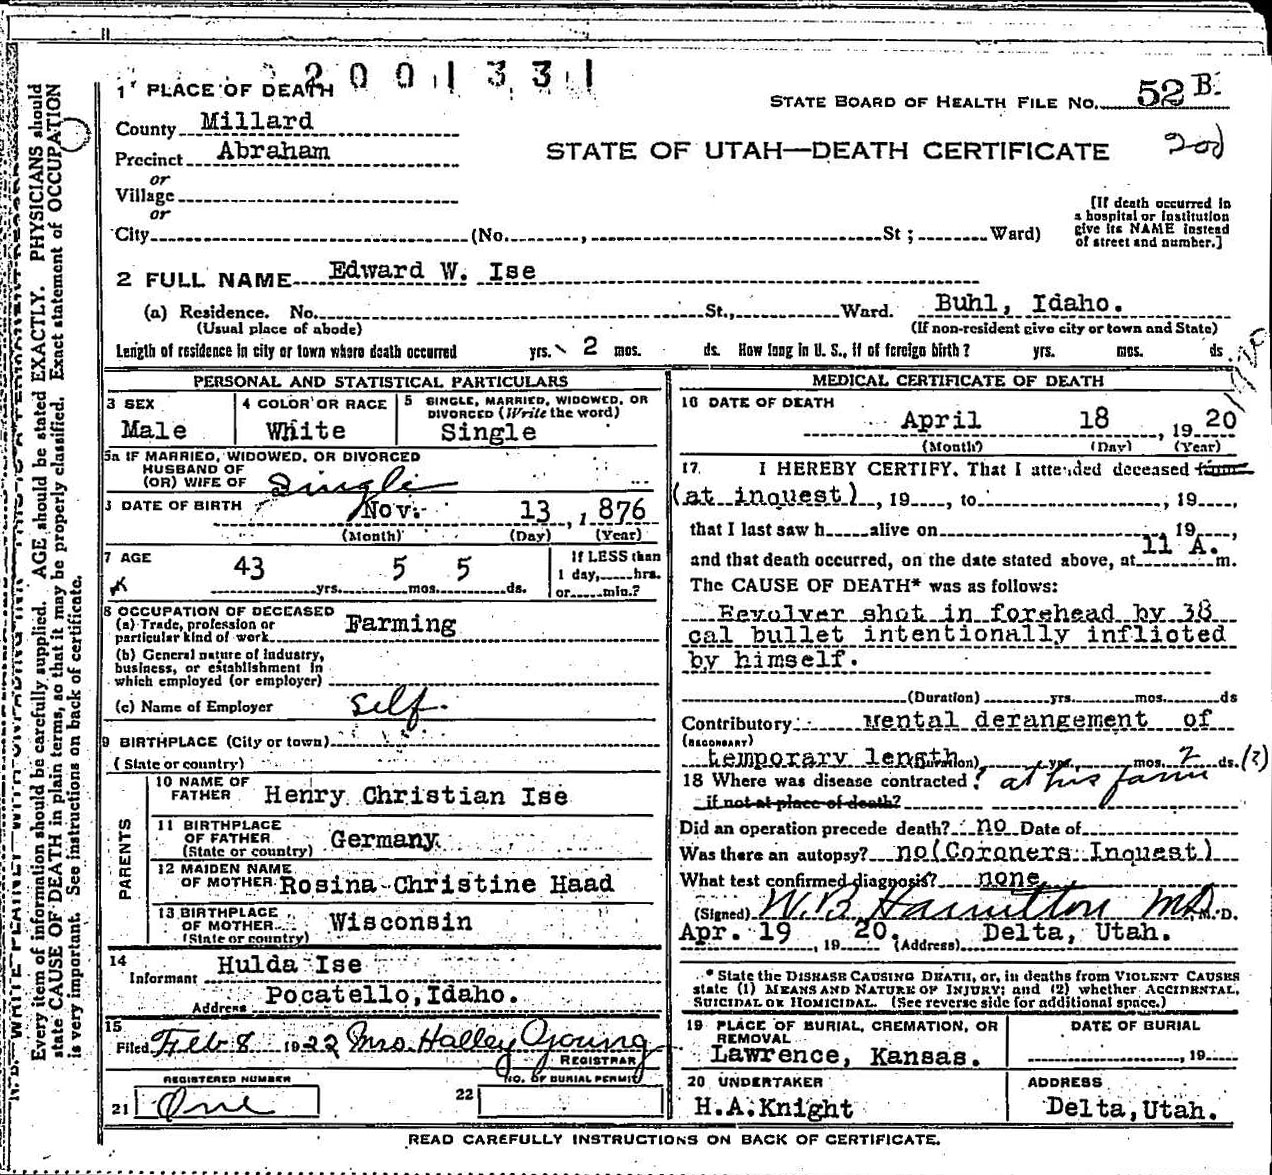 2001331
1 PLACE OF DEATH
STATE BOARD OF HEALTH FILE NO. 52 B.
County Millard
Precinct Abraham
STATE OF UTAH—DEATH CERTIFICATE
or
Village
or
City (No. , St ; Ward)
[If death occurred in
a hospital or institution
give its NAME instead
of street and number.]
2 FULL NAME Edward W. Ise
(a) Residence. No. St., Ward. Buhl, Idaho.
(Usual place of abode) (If non-resident give city or town and State)
Length of residence in city or town where death occurred yrs. 2 mos. ds. How long in U. S., if of foreign birth? yrs. mos. ds.
PERSONAL AND STATISTICAL PARTICULARS
3 SEX
Male
4 COLOR OR RACE
White
5 SINGLE, MARRIED, WIDOWED, OR
DIVORCED (Write the word)
Single
5a IF MARRIED, WIDOWED, OR DIVORCED
HUSBAND OF
(OR) WIFE OF Single
DATE OF BIRTH Nov. 13 , 1876
(Month) (Day) (Year)
7 AGE
43 yrs. 5 mos. 5 ds.
If LESS than
1 day, hrs.
or min.?
8 OCCUPATION OF DECEASED
(a) Trade, profession or
particular kind of work Farming
(b) General nature of industry,
business, or establishment in
which employed (or employer)
(c) Name of Employer self.
9 BIRTHPLACE (City or town)
(State or country)
PARENTS
10 NAME OF
FATHER Henry Christian Ise
11 BIRTHPLACE
OF FATHER
(State or country) Germany.
12 MAIDEN NAME
OF MOTHER Rosina Christine Haad
13 BIRTHPLACE
OF MOTHER
(State or country) Wisconsin
14
Informant Hulda Ise
Address Pocatello, Idaho.
15
Filed Feb 8 1922 Mrs. Halley Young
REGISTRAR
REGISTERED NUMBER
21 One
NO. OF BURIAL PERMIT
22
MEDICAL CERTIFICATE OF DEATH
16 DATE OF DEATH
April 18 , 19 20
(Month) (Day) (Year)
17 I HEREBY CERTIFY. That I attended deceased from
(at inquest) , 19 , to , 19 ,
that I last saw h alive on 19 ,
and that death occurred, on the date stated above, at 11 A. m.
The CAUSE OF DEATH* was as follows:
Revolver shot in forehead by 38
cal bullet intentionally inflicted
by himself.
(Duration) yrs. mos. ds
Contributory Mental derangement of
(SECONDARY)
temporary length (Duration) yrs. mos. 2 ds. (?)
18 Where was disease contracted? at his farm
if not at place of death?
Did an operation precede death? no Date of
Was there an autopsy? no (Coroners Inquest)
What test confirmed diagnosis? none
(Signed) W. B Hamilton MD. M.D.
Apr. 19 , 19 20. (Address) Delta, Utah.
* State the DISEASE CAUSING DEATH, or, in deaths from VIOLENT CAUSES
state (1) MEANS AND NATURE OF INJURY; and (2) whether ACCIDENTAL,
SUICIDAL OR HOMICIDAL. (See reverse side for additional space.)
19 PLACE OF BURIAL, CREMATION, OR
REMOVAL
Lawrence, Kansas.
DATE OF BURIAL
, 19
20 UNDERTAKER
H.A.Knight
ADDRESS
Delta, Utah.
READ CAREFULLY INSTRUCTIONS ON BACK OF CERTIFICATE.
Every item of information should be carefully supplied. AGE should be stated EXACTLY. PHYSICIANS should
state CAUSE OF DEATH in plain terms, so that it may be properly classified. Exact statement of OCCUPATION
is very important. See instructions on back of certificate.